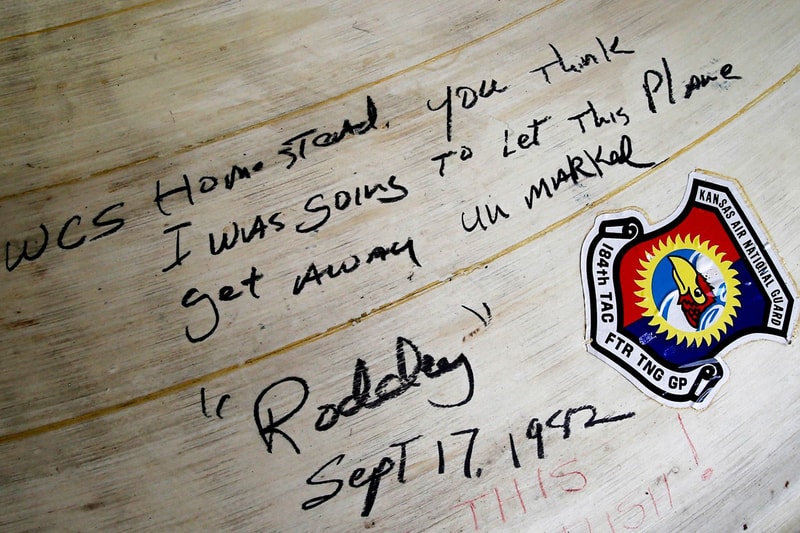 WCS Homestead. You Think
I WAS going To Let This Plane
get AWAY UN MARKED
"Roddey"
Sept 17, 1982
KANSAS AIR NATIONAL GUARD
184th TAC
FTR TNG GP
THIS